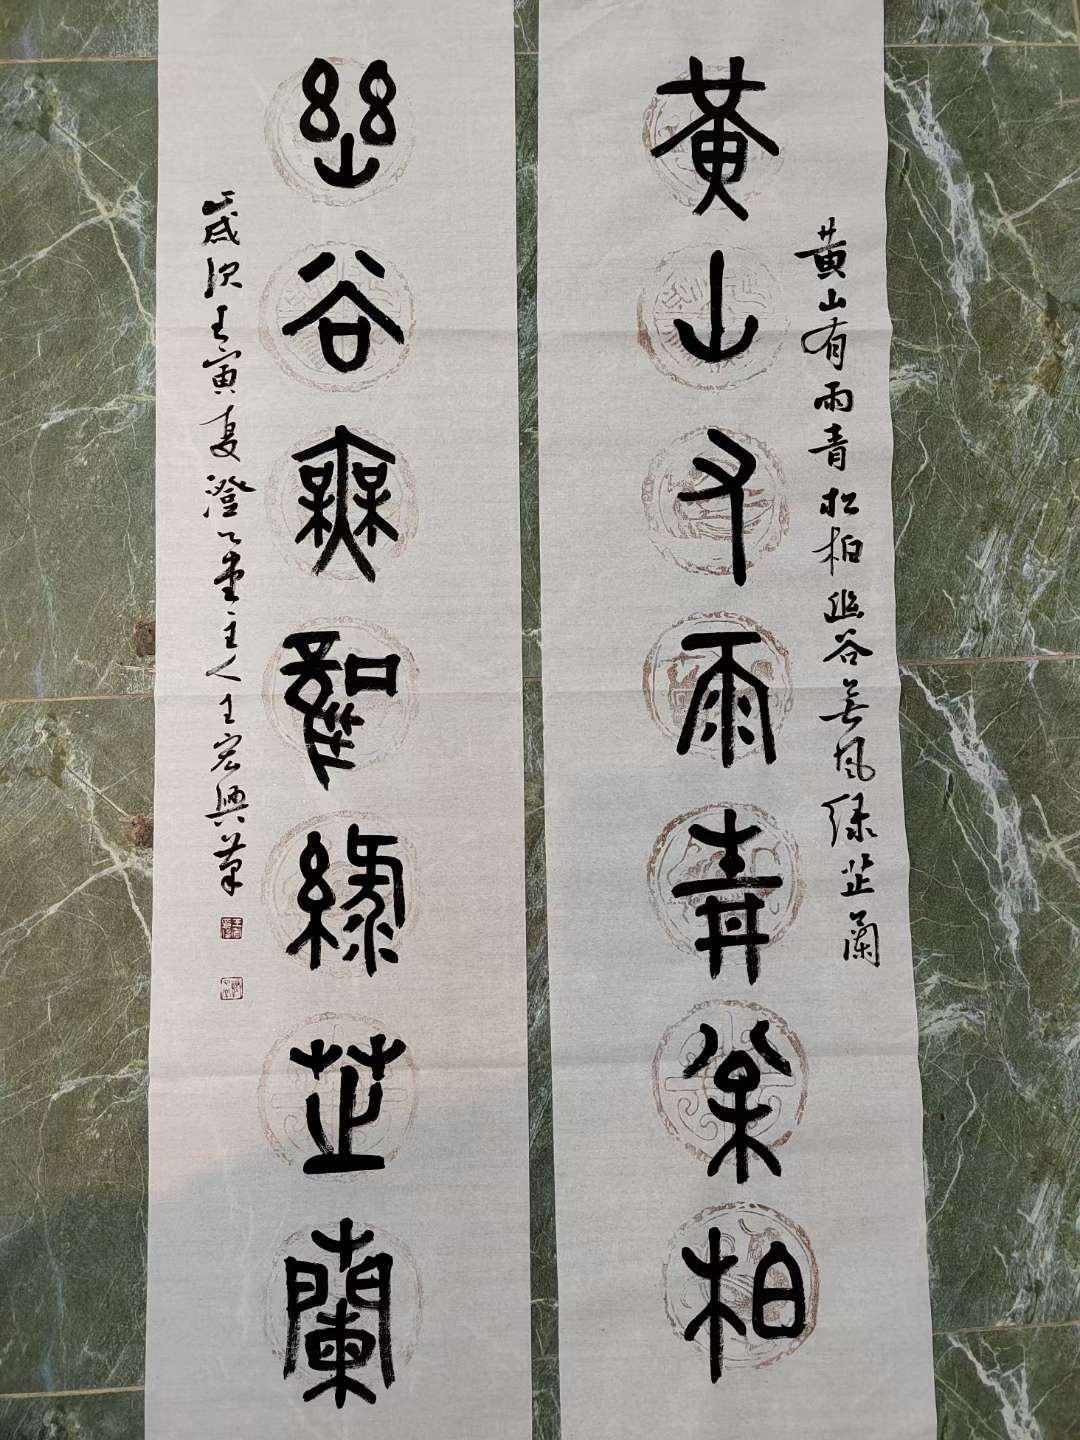 黄山有雨青松柏幽谷无风绿芷蘭
黃山又雨青松柏
幽谷無風綠芷蘭
歲次壬寅夏澄心堂主人王宏興筆